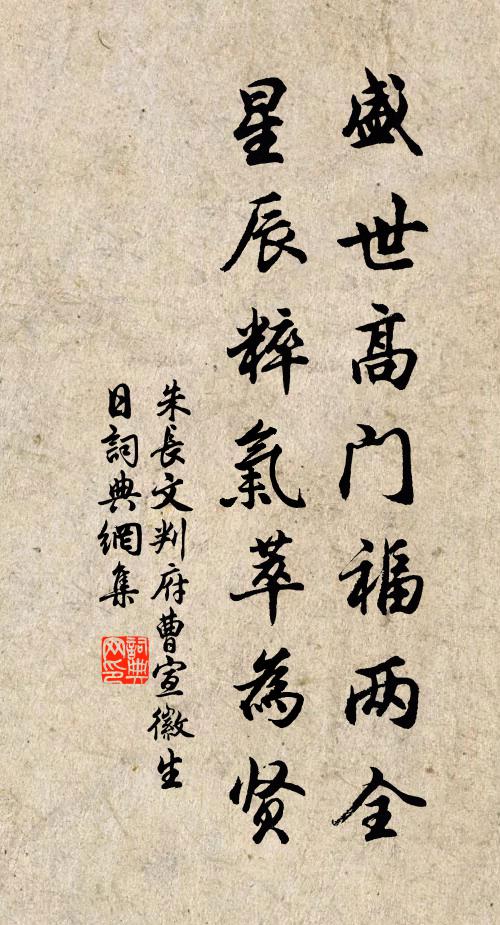 盛世高门福两全
星辰粹氣萃為贤
朱長文判府曹宣徽生
日詞典網集
詞典网印